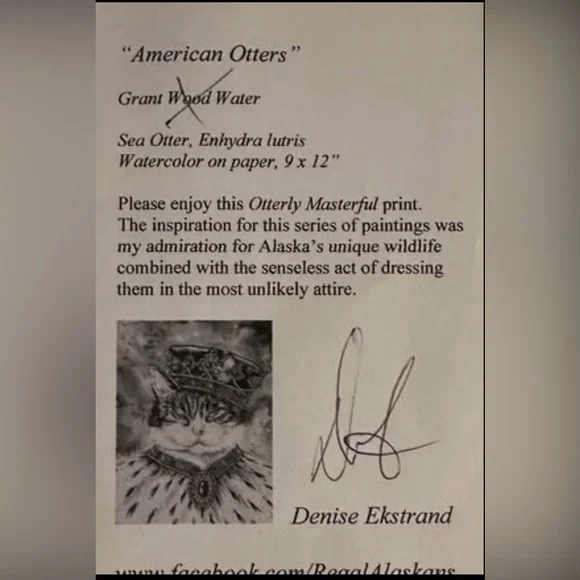 "American Otters"
Grant Wood Water
Sea Otter, Enhydra lutris
Watercolor on paper, 9 x 12"
Please enjoy this Otterly Masterful print.
The inspiration for this series of paintings was
my admiration for Alaska's unique wildlife
combined with the senseless act of dressing
them in the most unlikely attire.
Denise Ekstrand
www.facebook.com/RegalAlaskans